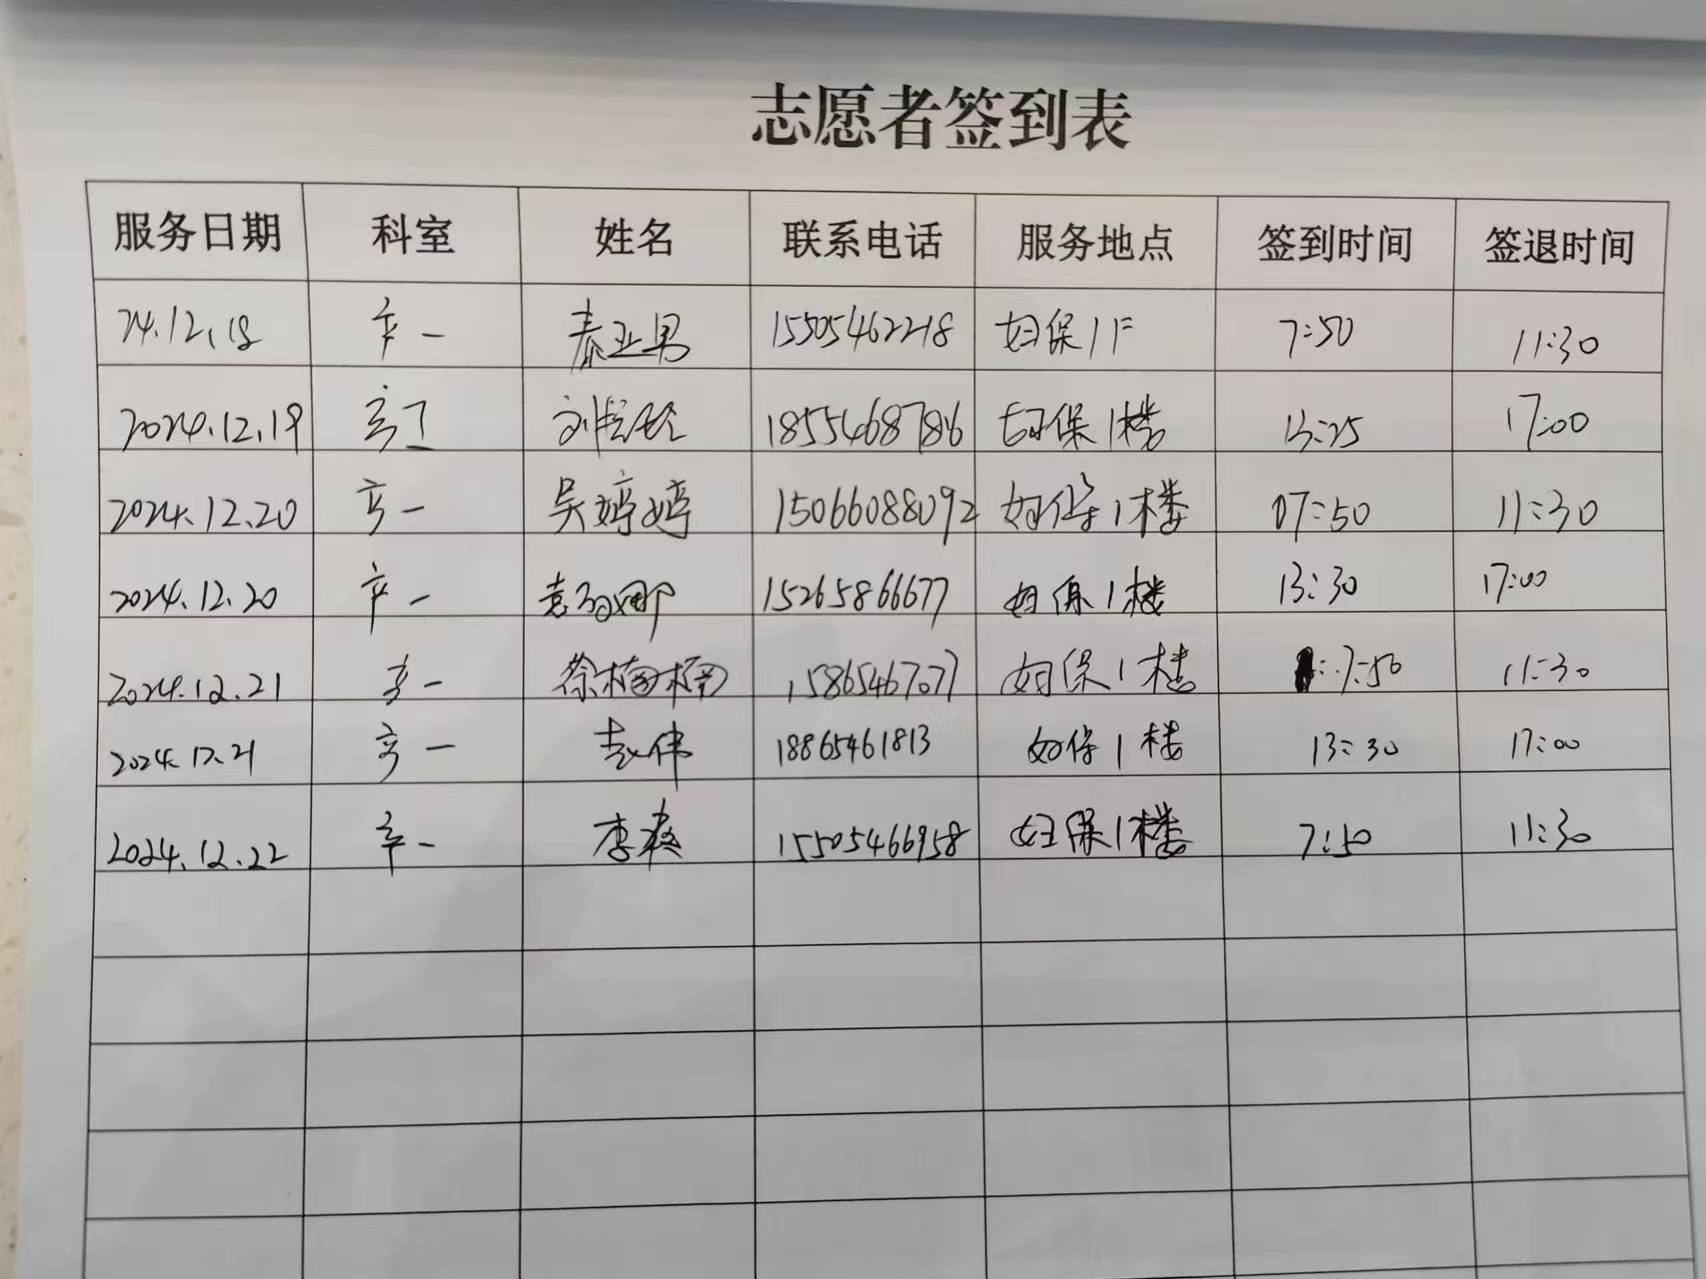 志愿者签到表
服务日期 科室 姓名 联系电话 服务地点 签到时间 签退时间
24.12.18 一 秦亚男 15505462218 妇保1F 7:50 11:30
2024.12.19 刘 18554687186 妇保1楼 13:25 17:00
2024.12.20 一 吴婷婷 15066088092 妇保1楼 07:50 11:30
2024.12.20 一 袁娜 15265866677 妇保1楼 13:30 17:00
2024.12.21 一 徐楠楠 15865467077 妇保1楼 7:50 11:30
2024.12.21 一 赵伟 18865461813 妇保1楼 13:30 17:00
2024.12.22 一 李爽 15505466958 妇保1楼 7:50 11:30